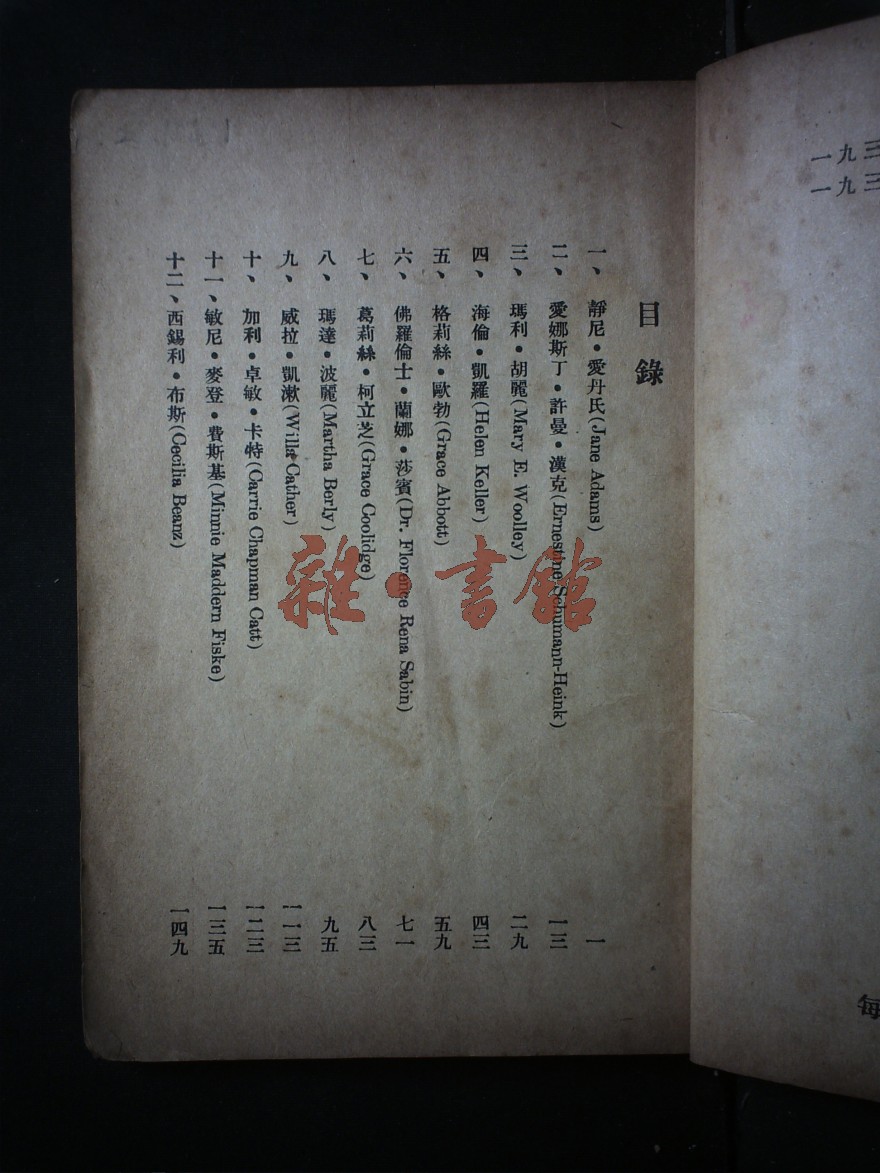 一九三
一九三
每
目錄
一、靜尼•愛丹氏(Jane Adams) 一
二、愛娜斯丁•許曼•漢克(Ernestine Schumann-Heink) 一三
三、瑪利•胡麗(Mary E. Woolley) 二九
四、海倫•凱羅(Helen Keller) 四三
五、格莉絲•歐勃(Grace Abbott) 五九
六、佛羅倫士•蘭娜•莎賓(Dr. Florence Rena Sabin) 七一
七、葛莉絲•柯立芝(Grace Coolidge) 八三
八、瑪達•波麗(Martha Berly) 九五
九、威拉•凱漱(Willa Cather) 一一三
十、加利•卓敏•卡特(Carrie Chapman Catt) 一二三
十一、敏尼•麥登•費斯基(Minnie Maddern Fiske) 一三五
十二、西錫利•布斯(Cecilia Beanz) 一四九
雜•書館